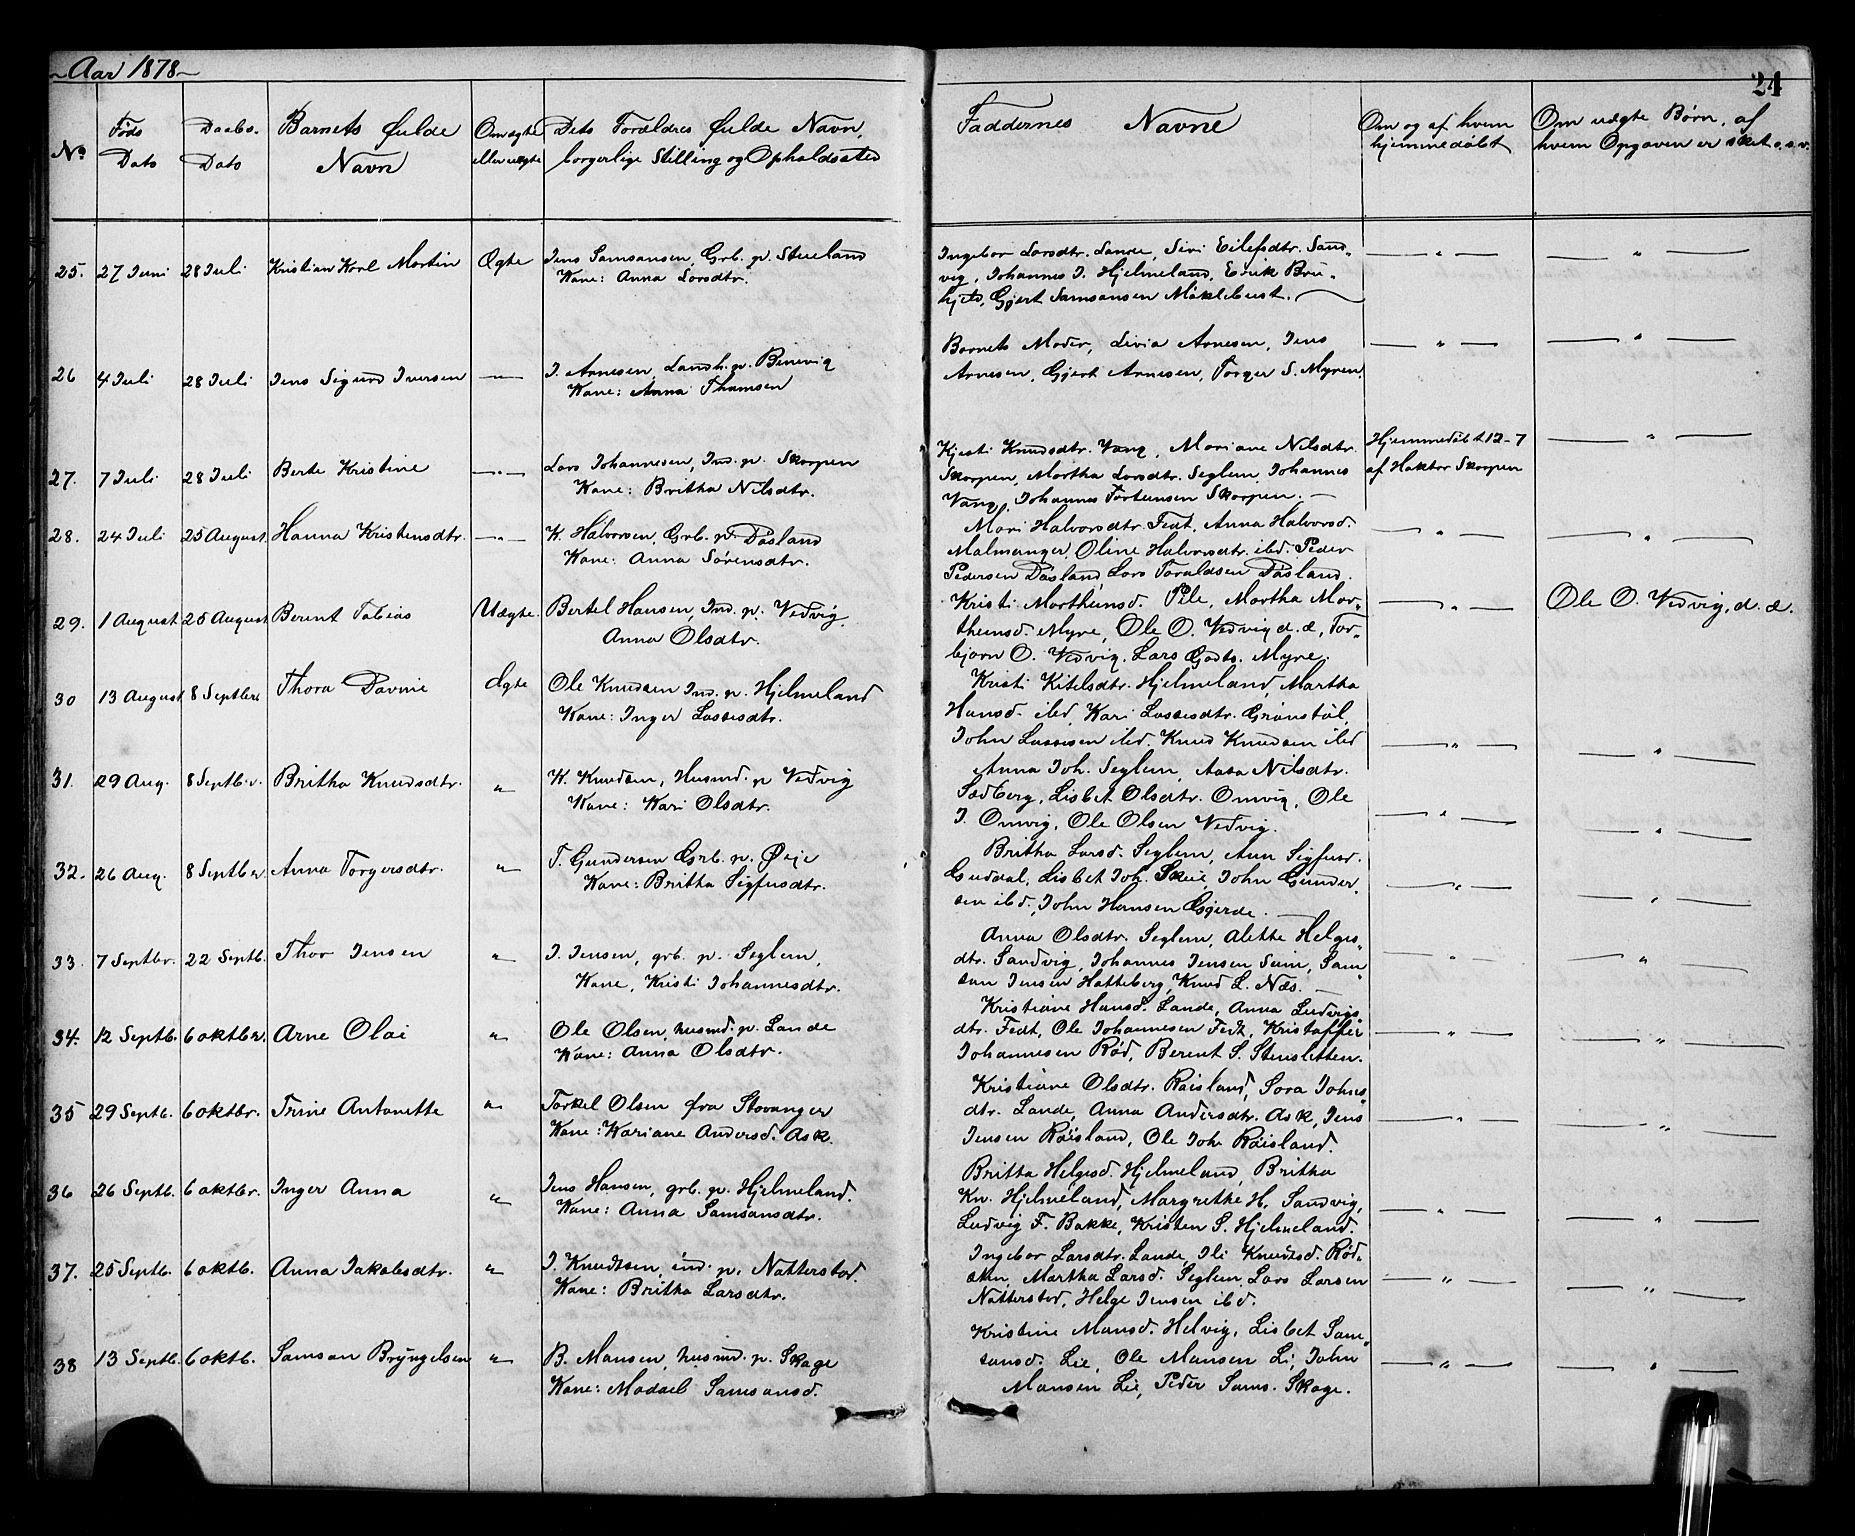 Aar 1878
24
No
Føds Dato
Daabs. Dato
Barnets fulde Navn
Om ægte eller uægte
Dets Forældres fulde Navn, borgerlige Stilling og Opholdssted
Faddernes Navne
Om og af hvem hjemmedøbt
Om uægte Børn, af hvem Opgaven er sket o.s.v.
25. 27 Juni 28 Juli Kristian Karl Martin Ægte Jens Samsonsen, Grb. p.
Kone: Anna Larsdtr.
Ingebor Larsdtr. Lande, Siri Eilefsdtr. Sand-
vig, Johannes J. Hjelmeland, Erik
Gjert Samsonsen Møklebust.
26 4 Juli 28 Juli Jens Sigurd Iversen — " — I. Arnesen, Landh. p.
Kone: Anna Thomsen
Barnets Moder, Livia Arnesen, Jens
Arnesen, Gjert Arnesen, Torger S. Myren.
27. 7 Juli 28 Juli Berte Kristine — " — Lars Johannesen, Ind. p. Skorpen
Kone: Britha Nilsdtr.
Kjesti Knudsdtr. Vang, Mariane Nilsdtr.
Skorpen, Martha Larsdtr. Seglem, Johannes
Vang, Johannes Torkensen Skorpen. —
Hjemmedøbt 12-7
af Haktor Skorpen
28. 24 Juli 25 August Hanna Kristensdtr. — " — K. Halvorsen, Grb. p. Døsland
Kone: Anna Sørensdtr.
Mari Halvorsdtr. Fedt, Anna Halvorsd.
Malmanger, Oline Halvorsdtr. ibd. Peder
Pedersen Døsland, Lars Taraldsen Døsland.
29. 1 August 25 August Berent Tobias Uægte. Bertel Hansen, Ind. p. Vedvig.
Anna Olsdtr.
Kristi Morthensd. Pile, Martha Mor-
thensd. Myre, Ole O. Vedvig d. æ, Tor-
bjørn O. Vedvig. Lars Godts. Myre.
Ole O. Vedvig, d. æ.
30 13 August 8 Septbr Thora Davine Ægte Ole Knudsen Ind. p. Hjelmeland
Kone: Inger Lassesdtr.
Kristi Kitelsdtr. Hjelmeland, Martha
Hansd. ibd, Kari Lassesdtr. Grønstøl,
John Lassesen ibd. Knud Knudsen ibd
31. 29 Aug. 8 Septb.r. Britha Knudsdtr. " K. Knudsen, Husmd. p Vedvig
Kone: Kari Olsdtr.
Anna Joh. Seglem, Aasa Nilsdtr.
Sædberg, Lisbet Olsdtr. Omvig, Ole
J. Omvig, Ole Olsen Vedvig.
32. 26 Aug. 8 Septber. Anna Torgersdtr. " T. Gundersen Grb. p. Øije
Kone: Britha Sigfusdtr.
Britha Larsd. Seglem, Ann Sigfusd.
Guddal, Lisbet Joh. Skeie, John Gunder-
sen ibd., John Hansen
33. 7 Septbr. 22 Septb. Thor Jensen " J. Jensen, grb. p. Seglem,
Kone, Kristi Johannesdtr.
Anna Olsdtr. Seglem, Alette Helges-
dtr. Sandvig, Johannes Jensen Seim, Sam-
son Jensen Hatteberg, Knud L. Næs. —
34. 12 Septb. 6 oktber. Arne Olai " Ole Olsen, husmd. p. Lande
Kone: Anna Olsdtr.
Kristiane Hansd. Lande, Anna Ludvigs-
dtr. Fedt, Ole Johannesen Fedt, Kristoffer
Johannesen Rød, Berent S. Stensletten.
35 29 Septb. 6 oktbr. Trine Antonette " Torkel Olsen fra Stavanger
Kone: Kariane Andersd. Ask.
Kristiane Olsdtr. Røisland, Sora Johns-
dtr. Lande, Anna Andersdtr. Ask, Jens
Jensen Røisland, Ole Joh. Røisland.
36 26 Septb. 6 oktbr. Inger Anna " Jens Hansen, grb. p. Hjelmeland.
Kone: Anna Samsonsdtr.
Britta Helgesd. Hjelmeland, Britha
Kn. Hjelmeland, Margrethe H. Sandvig,
Ludvig F. Bakke, Kristen S. Hjelmeland.
37. 25 Septb. 6 oktb. Anna Jakobsdtr. " J. Knudtsen, ind. p. Natterstad.
Kone: Britha Larsdtr.
Ingebor Larsdtr. Lande, Ili Knudtsd. Rød-
sten, Martha Larsd. Seglem, Lars Larsen
Natterstad, Helge Jensen ibd.
38 13 Septb. 6 oktb. Samson Bryngelsen " B. Mansen, husmd. p. Skage
Kone: Madaeb Samsonsd.
Kristine Mansd. Helvig, Lisbet Sam-
sonsd. Lie, Ole Mansen Li, John
Mansen Lie, Peder Sams. Skage.